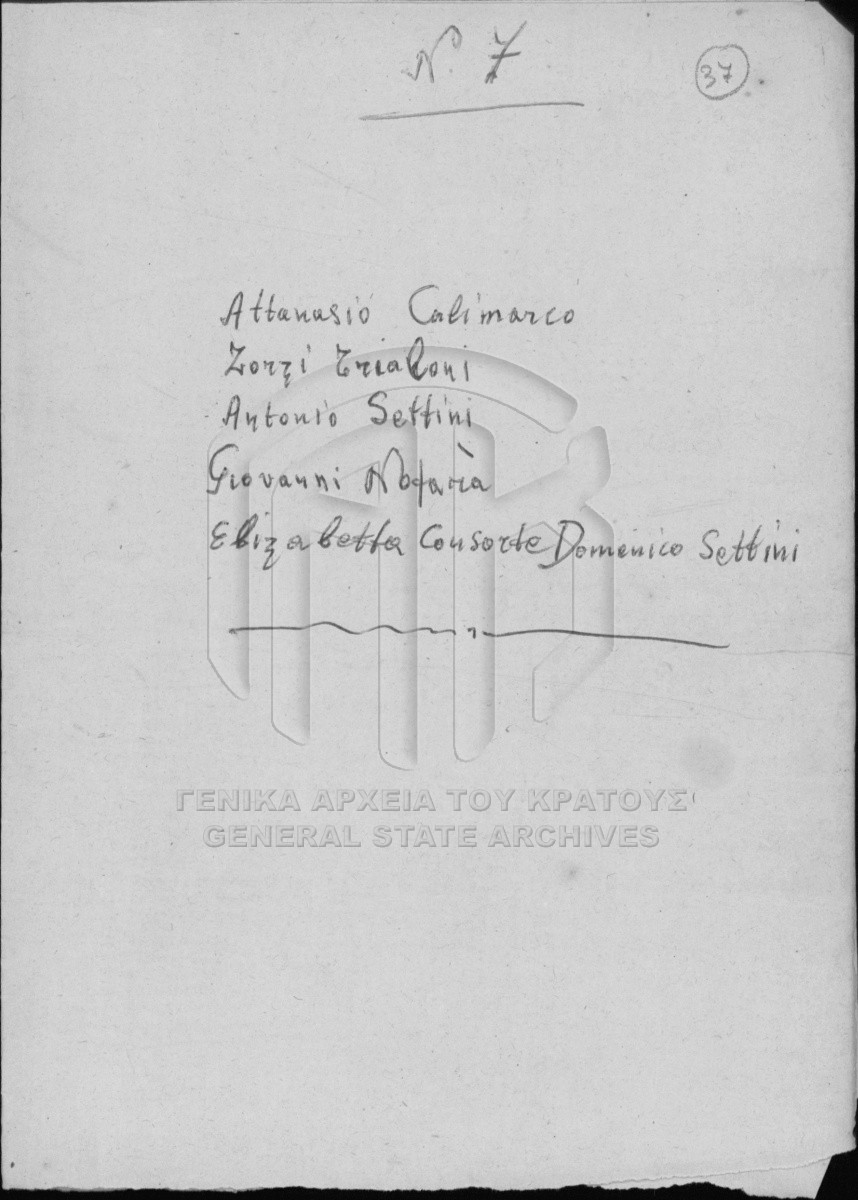 N. 7
37
Attanasio Calimarco
Zorzi Trialoni
Antonio Settini
Giovanni Notarà
Elizabetta Consorte Domenico Settini
ΓΕΝΙΚΑ ΑΡΧΕΙΑ ΤΟΥ ΚΡΑΤΟΥΣ
GENERAL STATE ARCHIVES